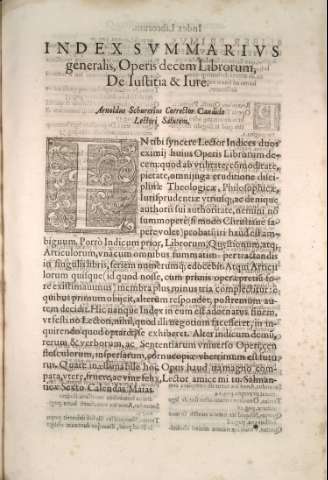 INDEX SVMMARIVS
generalis, Operis decem Librorum,
De Iustitia & Iure.
Arnoldus Schurerius Corrector Candido
Lectori Salutem.
EN tibi syncere Lector Indices duos
eximij huius Operis Librorum de-
cem, quod ab vtilitate, cōmoditate,
pietate, omnijuga eruditione disci-
plinæ Theologicæ, Philosophicæ,
Iurisprudentiæ vtriusq; ac denique
authoris sui authoritate, nemini nō
summo opere (si modo Christiane sa-
pere volet) probatū iri haud est am-
biguum. Porrò Indicum prior, Librorum, Quæstionum, atq;
Articulorum, vna cum omnibus summatim pertractandis
in singulis libris, seriem numerumq; edocebit. Atqui Articu-
lorum quisque (id quod nosse, cum primis operæpretiū fo-
re existimauimus) membra plus minus tria complectitur: è
quibus primum obijcit, alterum respondet, postremum au-
tem decidit. Hic nanque Index in eum est adornatus finem,
vt iesti no Lectori, nihil, quod illi negotium facesseret, in in-
quirendo quod optar de se exhiberet. Alter indicum demū,
rerum & verborum, ac Sententiarum vniuerso Opere, ceu
flosculorum, inspersarum, cornucopiæ vberrimum est futu-
rus. Quare inæstimabile hoc Opus haud ita magno com-
para, vtere, fruere, ac viue felix, Lector amice mi. Salman-
ticæ Sexto Calendas Maias.